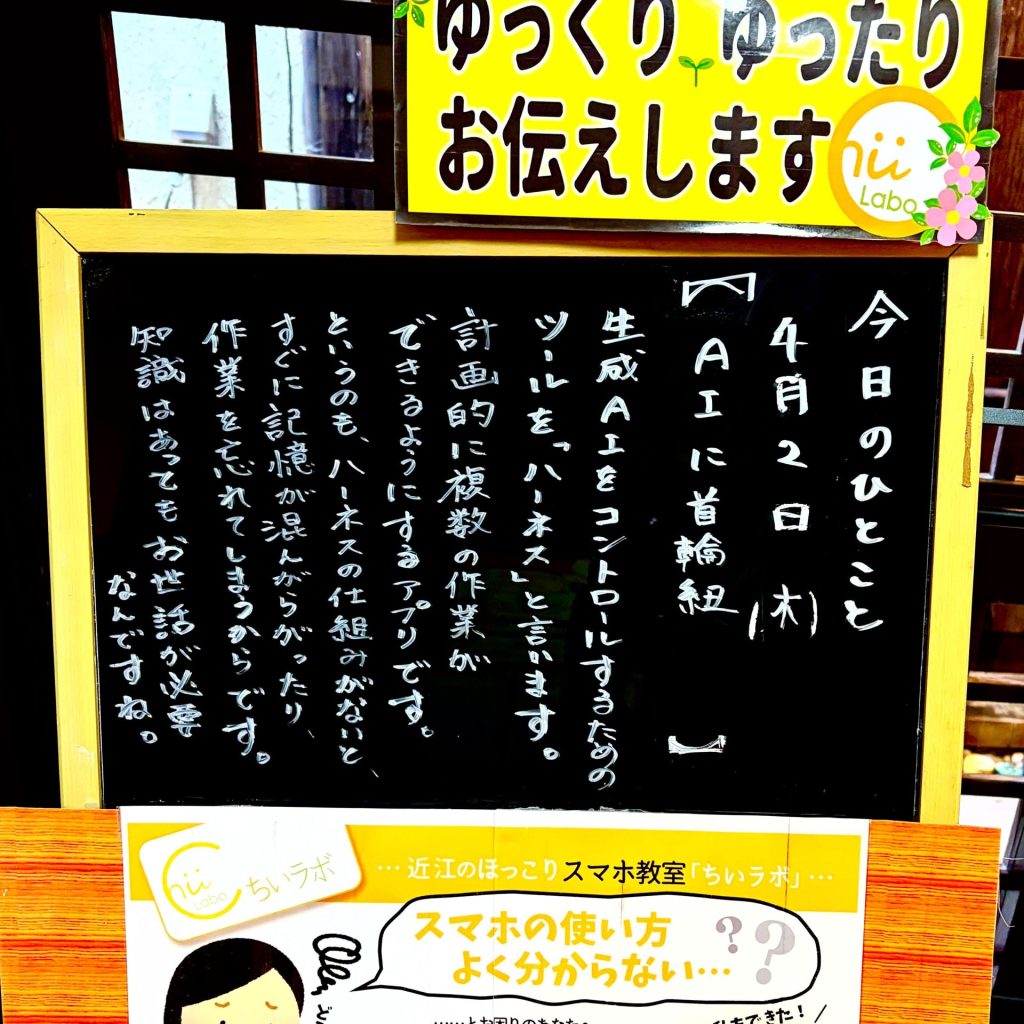 ゆっくり ゆったり
お伝えします
Chii
Labo
今日のひとこと
4月2日(木)
【AIに首輪紐】
生成AIをコントロールするための
ツールを、「ハーネス」と言います。
計画的に複数の作業が
できるようにするアプリです。
というのも、ハーネスの仕組みがないと、
すぐに記憶が混んがらがったり、
作業を忘れてしまうからです。
知識はあってもお世話が必要
なんですね。
Chii
Labo
ちいラボ
…近江のほっこりスマホ教室「ちいラボ」…
スマホの使い方
よく分からない…
??